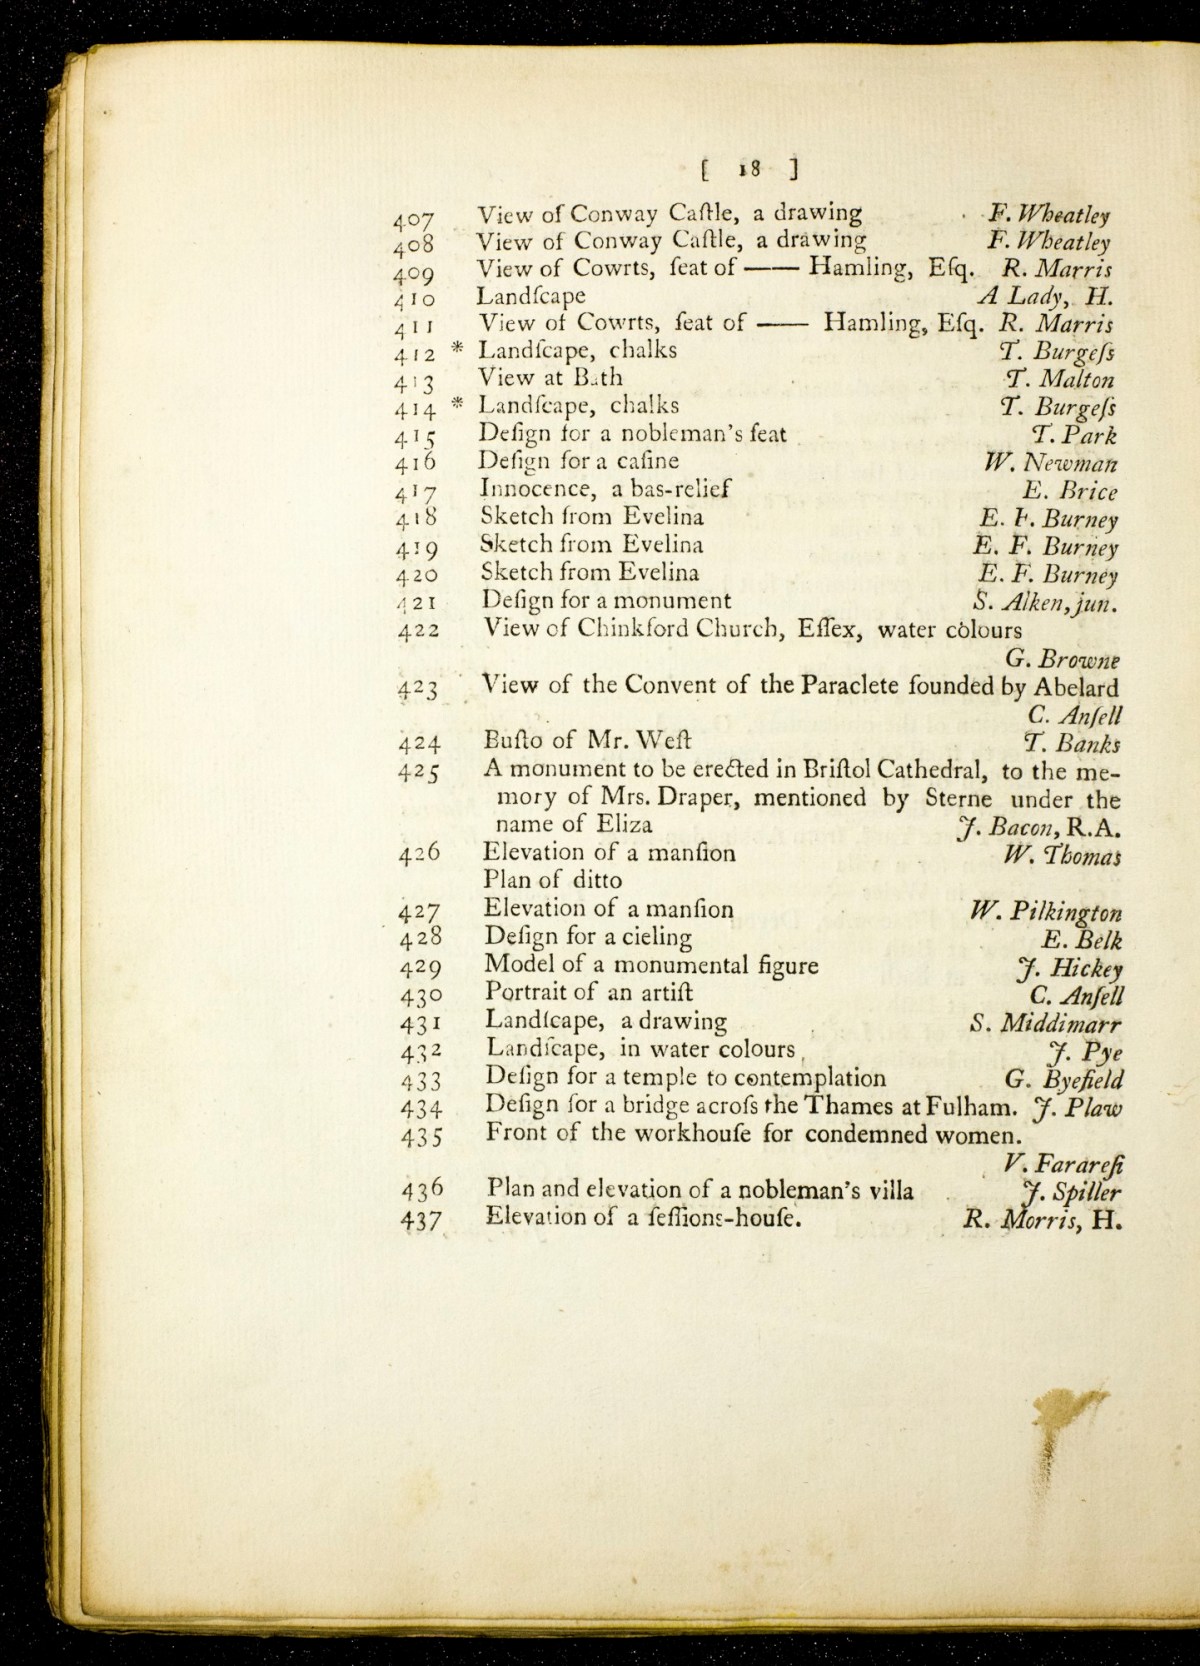 [ 18 ]
407 View of Conway Caſtle, a drawing F. Wheatley
408 View of Conway Caſtle, a drawing F. Wheatley
409 View of Cowrts, ſeat of —— Hamling, Eſq. R. Marris
410 Landſcape A Lady, H.
411 View of Cowrts, ſeat of —— Hamling, Eſq. R. Marris
412 * Landſcape, chalks T. Burgeſs
413 View at Bath T. Malton
414 * Landſcape, chalks T. Burgeſs
415 Deſign for a nobleman's ſeat T. Park
416 Deſign for a caſine W. Newman
417 Innocence, a bas-relief E. Brice
418 Sketch from Evelina E. F. Burney
419 Sketch from Evelina E. F. Burney
420 Sketch from Evelina E. F. Burney
421 Deſign for a monument S. Alken, jun.
422 View of Chinkford Church, Eſſex, water colours
G. Browne
423 View of the Convent of the Paraclete founded by Abelard
C. Anſell
424 Buſto of Mr. Weſt T. Banks
425 A monument to be erected in Briſtol Cathedral, to the me-
mory of Mrs. Draper, mentioned by Sterne under the
name of Eliza J. Bacon, R.A.
426 Elevation of a manſion W. Thomas
Plan of ditto
427 Elevation of a manſion W. Pilkington
428 Deſign for a cieling E. Belk
429 Model of a monumental figure J. Hickey
430 Portrait of an artiſt C. Anſell
431 Landſcape, a drawing S. Middimarr
432 Landſcape, in water colours, J. Pye
433 Deſign for a temple to contemplation G. Byefield
434 Deſign for a bridge acroſs the Thames at Fulham. J. Plaw
435 Front of the workhouſe for condemned women.
V. Farareſi
436 Plan and elevation of a nobleman's villa J. Spiller
437 Elevation of a ſeſſions-houſe. R. Morris, H.